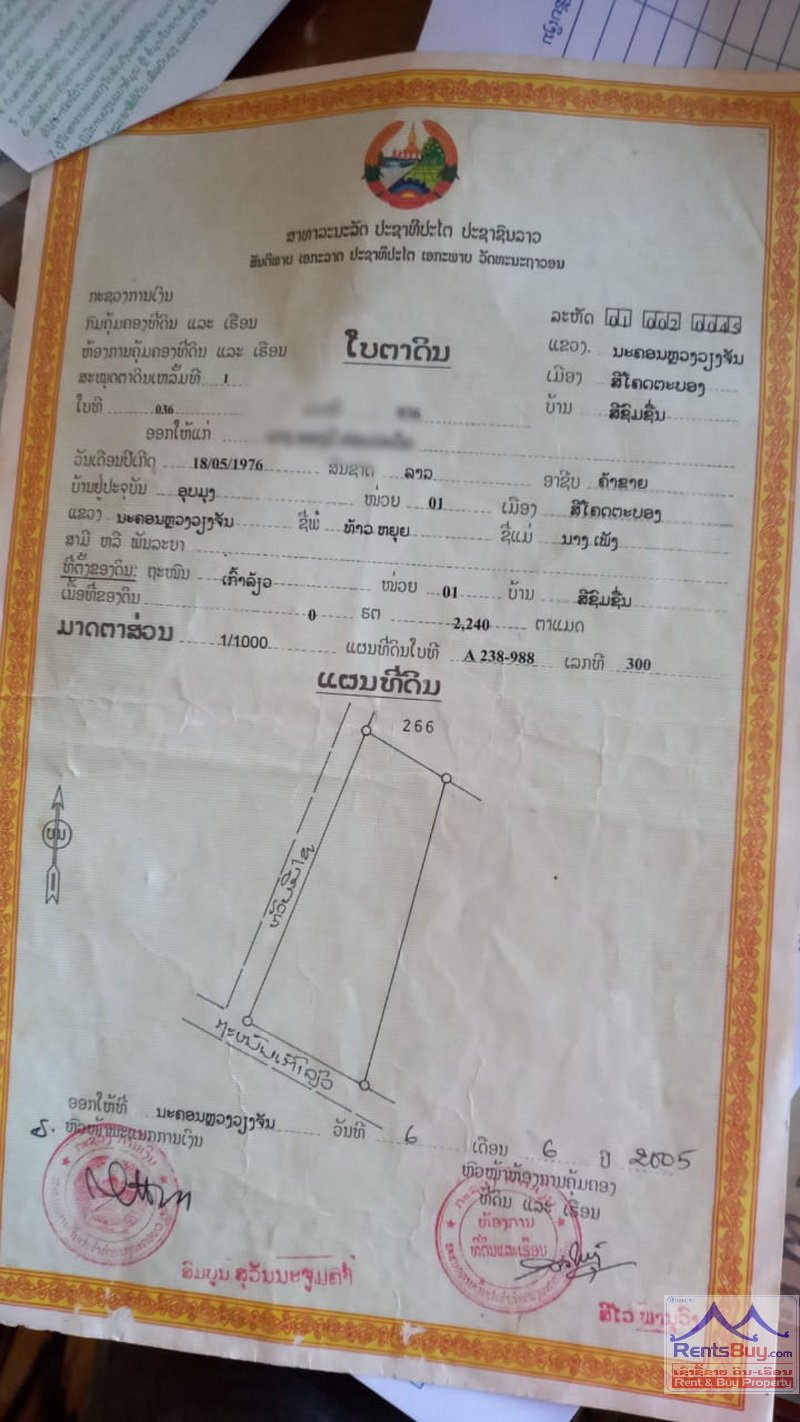 ສາທາລະນະລັດ ປະຊາທິປະໄຕ ປະຊາຊົນລາວ
ສັນຕິພາບ ເອກະລາດ ປະຊາທິປະໄຕ ເອກະພາບ ວັດທະນະຖາວອນ
ກະຊວງການເງິນ
ກົມຄຸ້ມຄອງທີ່ດິນ ແລະ ເຮືອນ
ຫ້ອງການຄຸ້ມຄອງທີ່ດິນ ແລະ ເຮືອນ
ສະໝຸດຕາດິນເຫລັ້ມທີ 1
ໃບທີ 036
ໃບຕາດິນ
ລະຫັດ 01 002 0043
ແຂວງ. ນະຄອນຫຼວງວຽງຈັນ
ເມືອງ ສີໂຄດຕະບອງ
ບ້ານ ສີຊົມຊື່ນ
036
ອອກໃຫ້ແກ່
ວັນເດືອນປີເກີດ 18/05/1976 ສັນຊາດ ລາວ ອາຊີບ ຄ້າຂາຍ
ບ້ານຢູ່ປະຈຸບັນ ອຸບມຸງ ໜ່ວຍ 01 ເມືອງ ສີໂຄດຕະບອງ
ແຂວງ ນະຄອນຫຼວງວຽງຈັນ ຊື່ພໍ່ ທ້າວ ຫຍຸຍ ຊື່ແມ່ ນາງ ເພັງ
ສາມີ ຫລື ພັນລະຍາ
ທີ່ຕັ້ງຂອງດິນ: ຖະໜົນ ເກົ້າລ້ຽວ ໜ່ວຍ 01 ບ້ານ ສີຊົມຊື່ນ
ເນື້ອທີ່ຂອງດິນ 0 ຮຕ 2,240 ຕາແມດ
ມາດຕາສ່ວນ 1/1000 ແຜນທີ່ດິນໃບທີ A 238-988 ເລກທີ 300
ແຜນທີ່ດິນ
266
ຖະໜົນເກົ້າລ້ຽວ
ອອກໃຫ້ທີ່ ນະຄອນຫຼວງວຽງຈັນ ວັນທີ 6 ເດືອນ 6 ປີ 2005
ຫົວໜ້າພະແນກການເງິນ
ຫົວໜ້າຫ້ອງການຄຸ້ມຄອງ
ທີ່ດິນ ແລະ ເຮືອນ
ຫ້ອງການ
ທີ່ດິນແລະເຮືອນ
RentsBuy.com
ເຊົ່າຊື້ຂາຍ ດິນ-ເຮືອນ
Rent & Buy Property